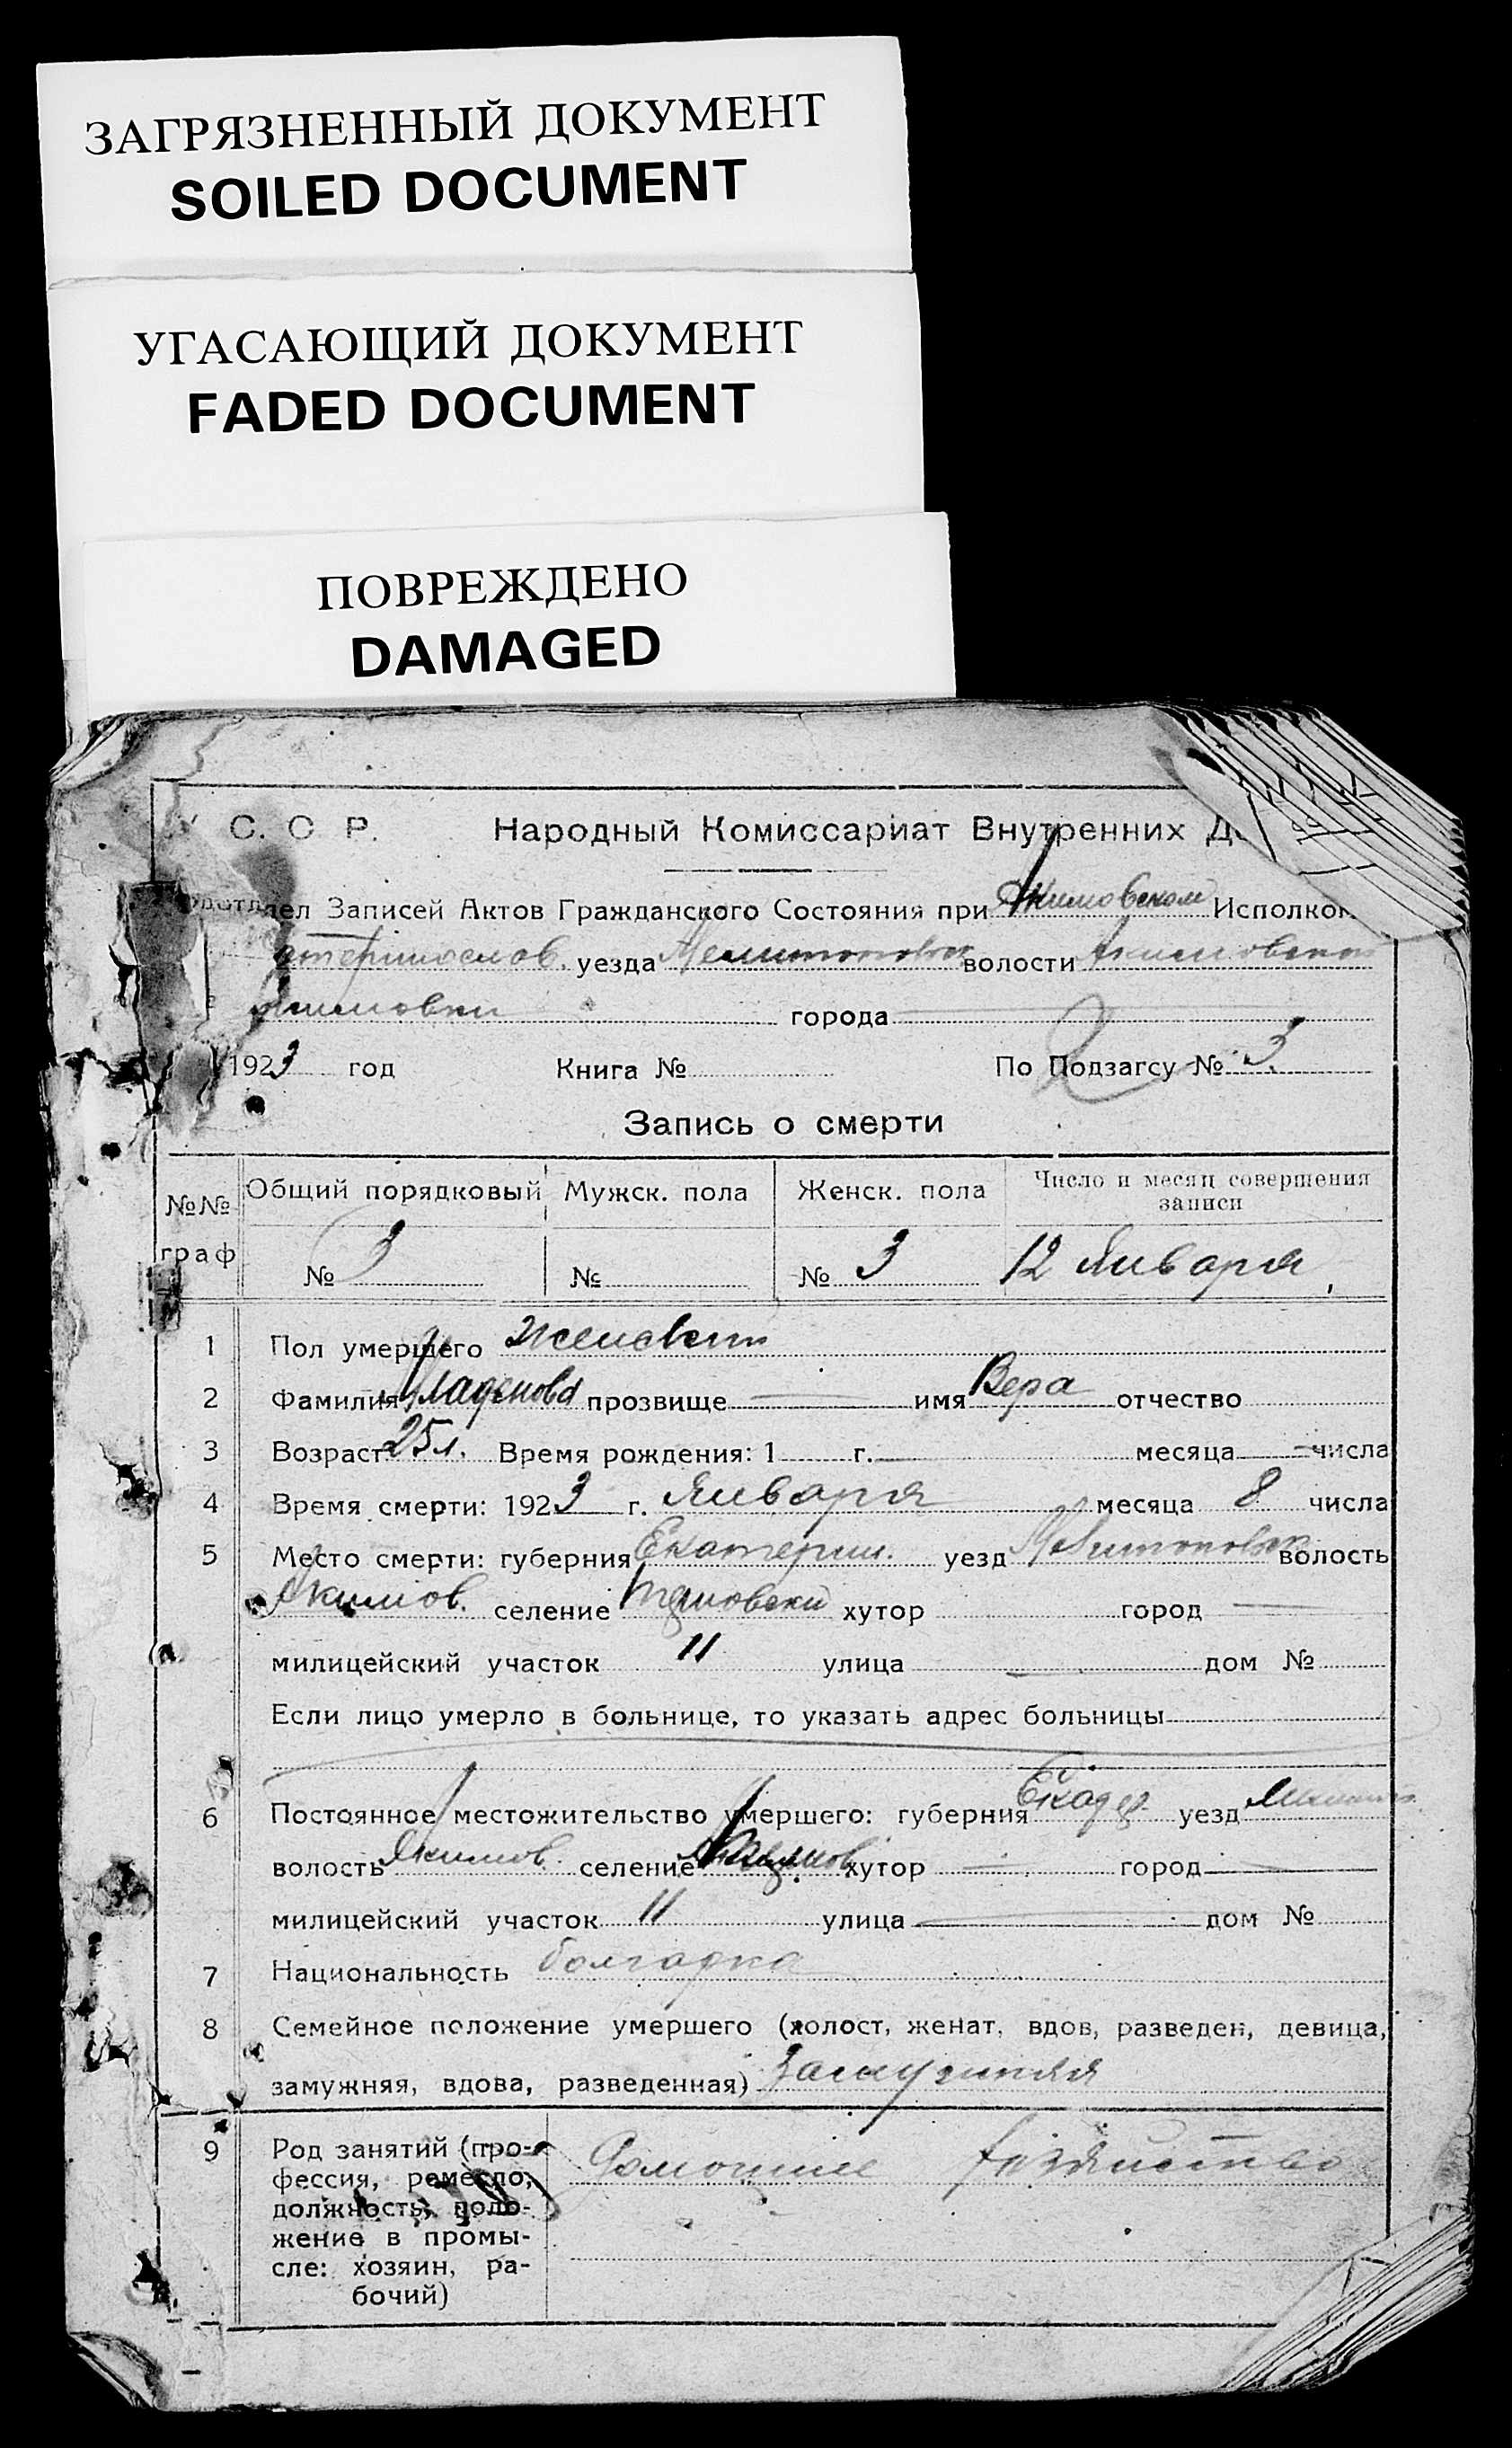 ЗАГРЯЗНЕННЫЙ ДОКУМЕНТ
SOILED DOCUMENT
УГАСАЮЩИЙ ДОКУМЕНТ
FADED DOCUMENT
ПОВРЕЖДЕНО
DAMAGED
С. С. Р. Народный Комиссариат Внутренних
Записей Актов Гражданского Состояния при Акимовском
уезда волости Акимовской
города
1923 год Книга № По Подзагсу № 3
Запись о смерти
№№ граф Общий порядковый Мужск. пола Женск. пола Число и месяц совершения записи
№ 3 № № 3 12 Января
1 Пол умершего Женский
2 Фамилия Младенова прозвище — имя Вера отчество
3 Возраст 25 л. Время рождения: 1 г. — месяца — числа
4 Время смерти: 1923 г. Января месяца 8 числа
5 Место смерти: губерния Екатерин. уезд волость
Акимов. селение хутор город —
милицейский участок 11 улица — дом №
Если лицо умерло в больнице, то указать адрес больницы
6 Постоянное местожительство умершего: губерния уезд
волость Акимов селение хутор — город —
милицейский участок 11 улица — дом №
7 Национальность болгарка
8 Семейное положение умершего (холост, женат, вдов, разведен, девица,
замужняя, вдова, разведенная) Замужняя
9 Род занятий (про- Домашнее хозяйство
фессия, ремесло,
должность, поло-
жение в промы-
сле: хозяин, ра-
бочий)